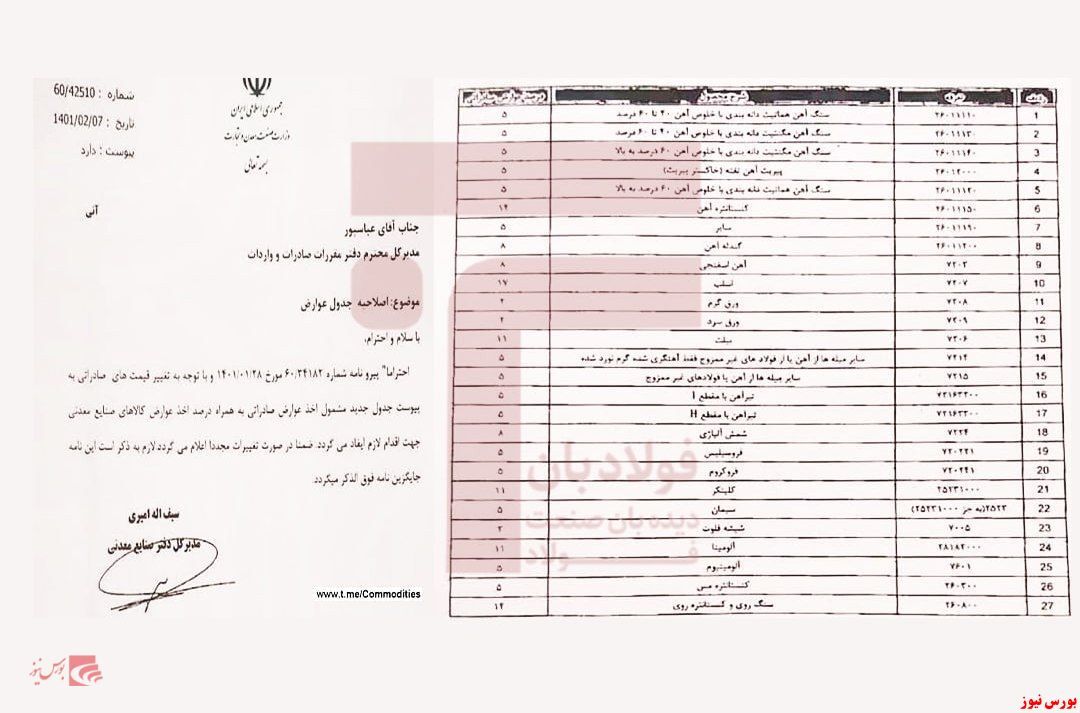 شماره : 60/42510
تاریخ : 1401/02/07
پیوست : دارد
جمهوری اسلامی ایران
وزارت صنعت، معدن و تجارت
بسمه تعالی
آنی
جناب آقای عباسپور
مدیرکل محترم دفتر مقررات صادرات و واردات
موضوع: اصلاحیه جدول عوارض
با سلام و احترام،
احتراما" پیرو نامه شماره ۶۰/۲۴۱۸۲ مورخ ۱۴۰۱/۰۱/۲۸ و با توجه به تغییر قیمت های صادراتی به
پیوست جدول جدید مشمول اخذ عوارض صادراتی به همراه درصد اخذ عوارض کالاهای صنایع معدنی
جهت اقدام لازم ایفاد می گردد. ضمنا در صورت تغییرات مجددا اعلام می گردد لازم به ذکر است این نامه
جایگزین نامه فوق الذکر میگردد.
سیف اله امیری
مدیرکل دفتر صنایع معدنی
www.t.me/Commodities
ردیف تعرفه شرح محصول درصد عوارض صادراتی
1 ۲۶۰۱۱۱۱۰ سنگ آهن هماتیت دانه بندی با خلوص آهن ۴۰ تا ۶۰ درصد ۵
2 ۲۶۰۱۱۱۳۰ سنگ آهن مگنتیت دانه بندی با خلوص آهن ۴۰ تا ۶۰ درصد ۵
3 ۲۶۰۱۱۱۴۰ سنگ آهن مگنتیت دانه بندی با خلوص آهن ۶۰ درصد به بالا ۵
4 ۲۶۰۱۲۰۰۰ پیریت آهن تفته (خاکستر پیریت) ۵
5 ۲۶۰۱۱۱۲۰ سنگ آهن هماتیت دانه بندی با خلوص آهن ۶۰ درصد به بالا ۵
6 ۲۶۰۱۱۱۵۰ کنسانتره آهن ۱۴
7 ۲۶۰۱۱۱۹۰ سایر ۵
8 ۲۶۰۱۱۲۰۰ گندله آهن ۸
9 ۷۲۰۳ آهن اسفنجی ۸
10 ۷۲۰۷ اسلب ۱۷
11 ۷۲۰۸ ورق گرم ۲
12 ۷۲۰۹ ورق سرد ۲
13 ۷۲۰۶ بیلت ۱۱
14 ۷۲۱۴ سایر میله ها از آهن یا از فولاد های غیر ممزوج فقط آهنگری شده گرم نورد شده ۵
15 ۷۲۱۵ سایر میله ها از آهن یا فولادهای غیر ممزوج ۵
16 ۷۲۱۶۳۲۰۰ تیرآهن با مقطع I ۵
17 ۷۲۱۶۳۳۰۰ تیرآهن با مقطع H ۵
18 ۷۲۲۴ شمش آلیاژی ۸
19 ۷۲۰۲۲۱ فروسیلیس ۵
20 ۷۲۰۲۴۱ فروکروم ۵
21 ۲۵۲۳۱۰۰۰ کلینکر ۱۱
22 ۲۵۲۳(به جز ۲۵۲۳۱۰۰۰) سیمان ۵
23 ۷۰۰۵ شیشه فلوت ۲
24 ۲۸۱۸۲۰۰۰ آلومینا ۱۱
25 ۷۶۰۱ آلومینیوم ۵
26 ۲۶۰۳۰۰ کنسانتره مس ۵
27 ۲۶۰۸۰۰ سنگ روی و کنسانتره روی ۱۴
فولادبان
دیده‌بان صنعت
فولاد
بورس نیوز
بورس نیوز